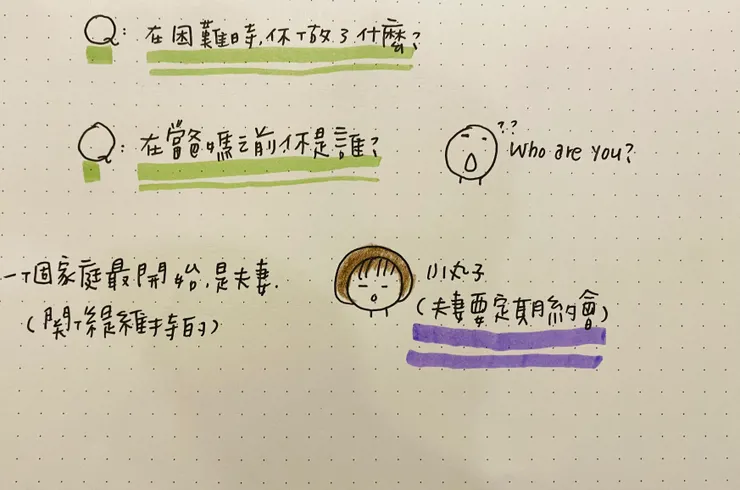 Q: 在困難時,你做了什麼?
Q: 在當爸媽之前你是誰?
?? Who are you?
一個家庭最開始,是夫妻.
(關係是維持的)
小丸子
(夫妻要定期約會)